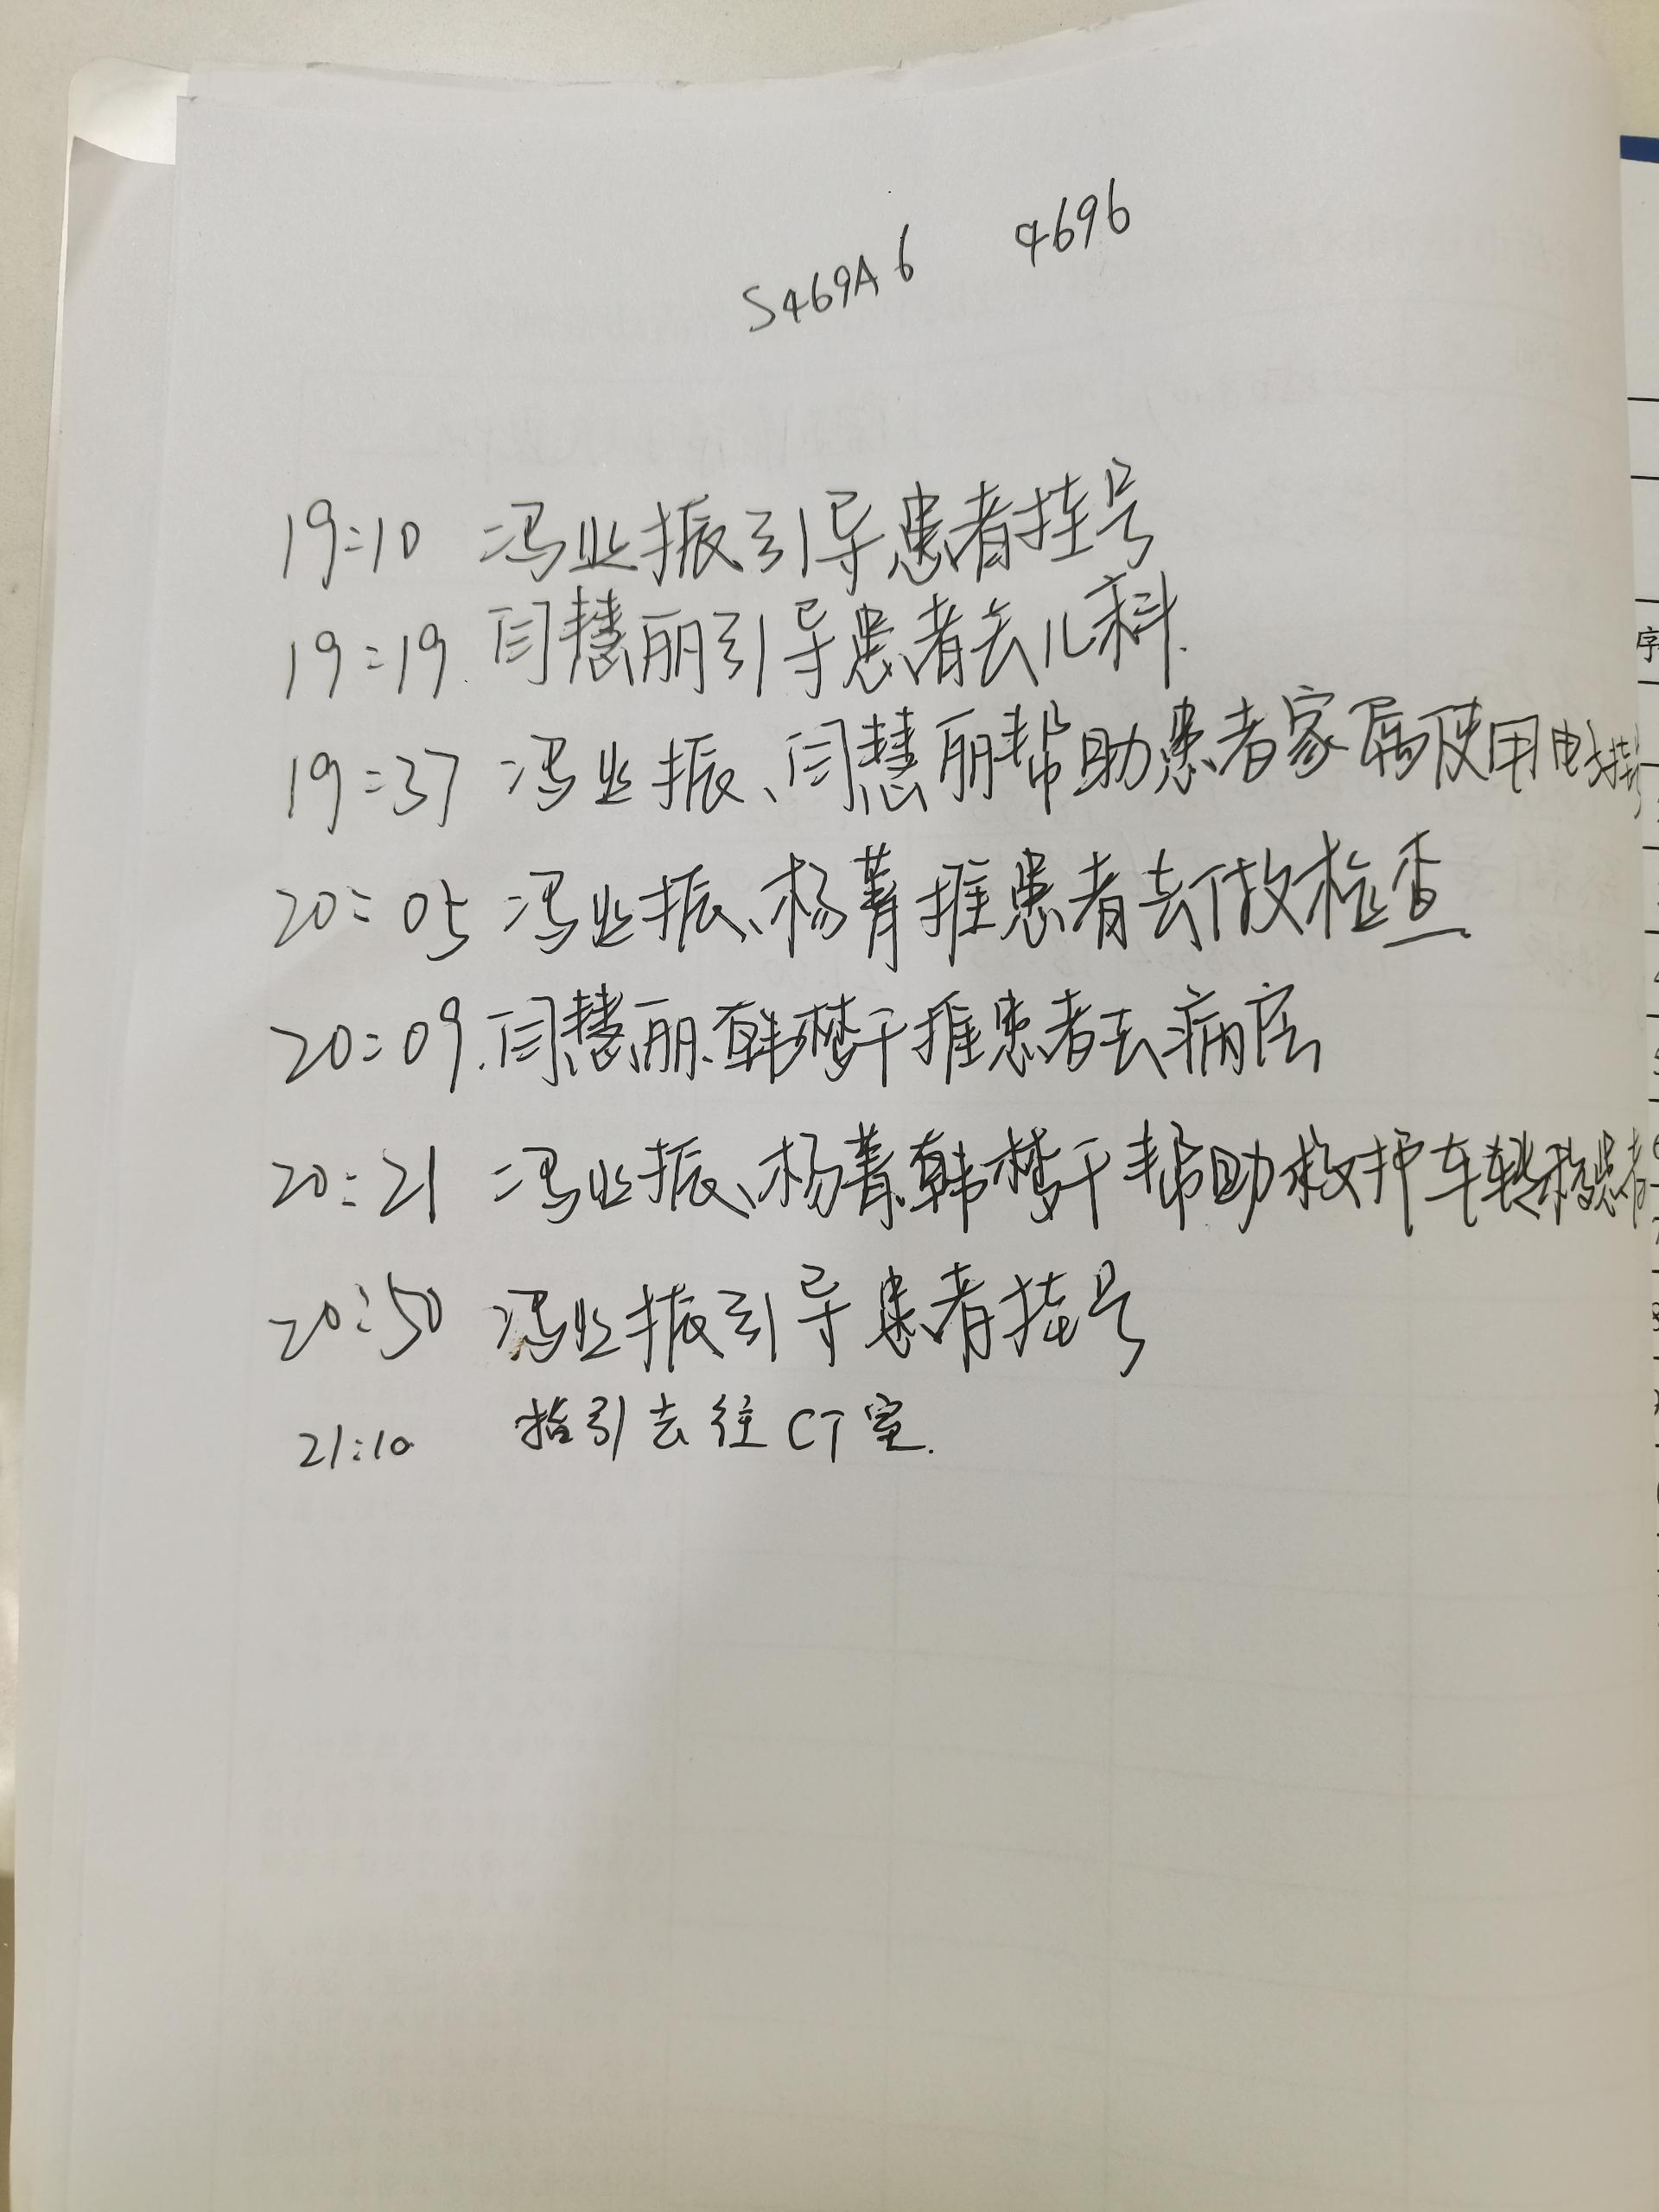 S469A6 4696
19:10 冯业振引导患者挂号
19:19 闫慧丽引导患者去儿科.
19:37 冯业振、闫慧丽帮助患者家属使用电
20:05 冯业振、杨菁推患者去做检查
20:09.闫慧丽.韩梦千推患者去病房
20:21 冯业振、杨菁、韩梦千帮助救护车转移患者
20:50 冯业振引导患者挂号
21:10 指引去往CT室.
字